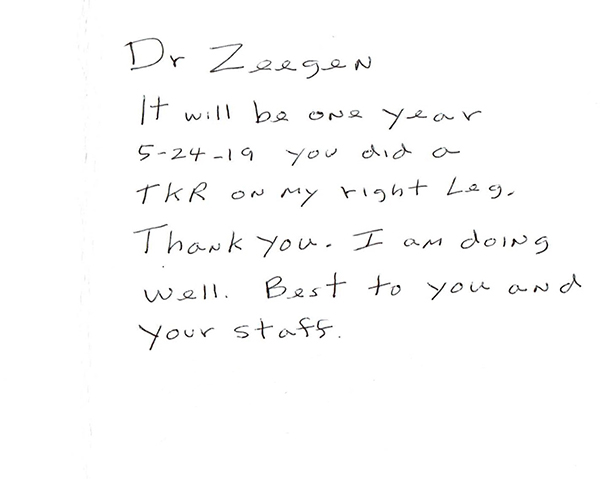 Dr Zeegen
It will be one year
5-24-19 you did a
TKR on my right Leg.
Thank you. I am doing
well. Best to you and
your staff.